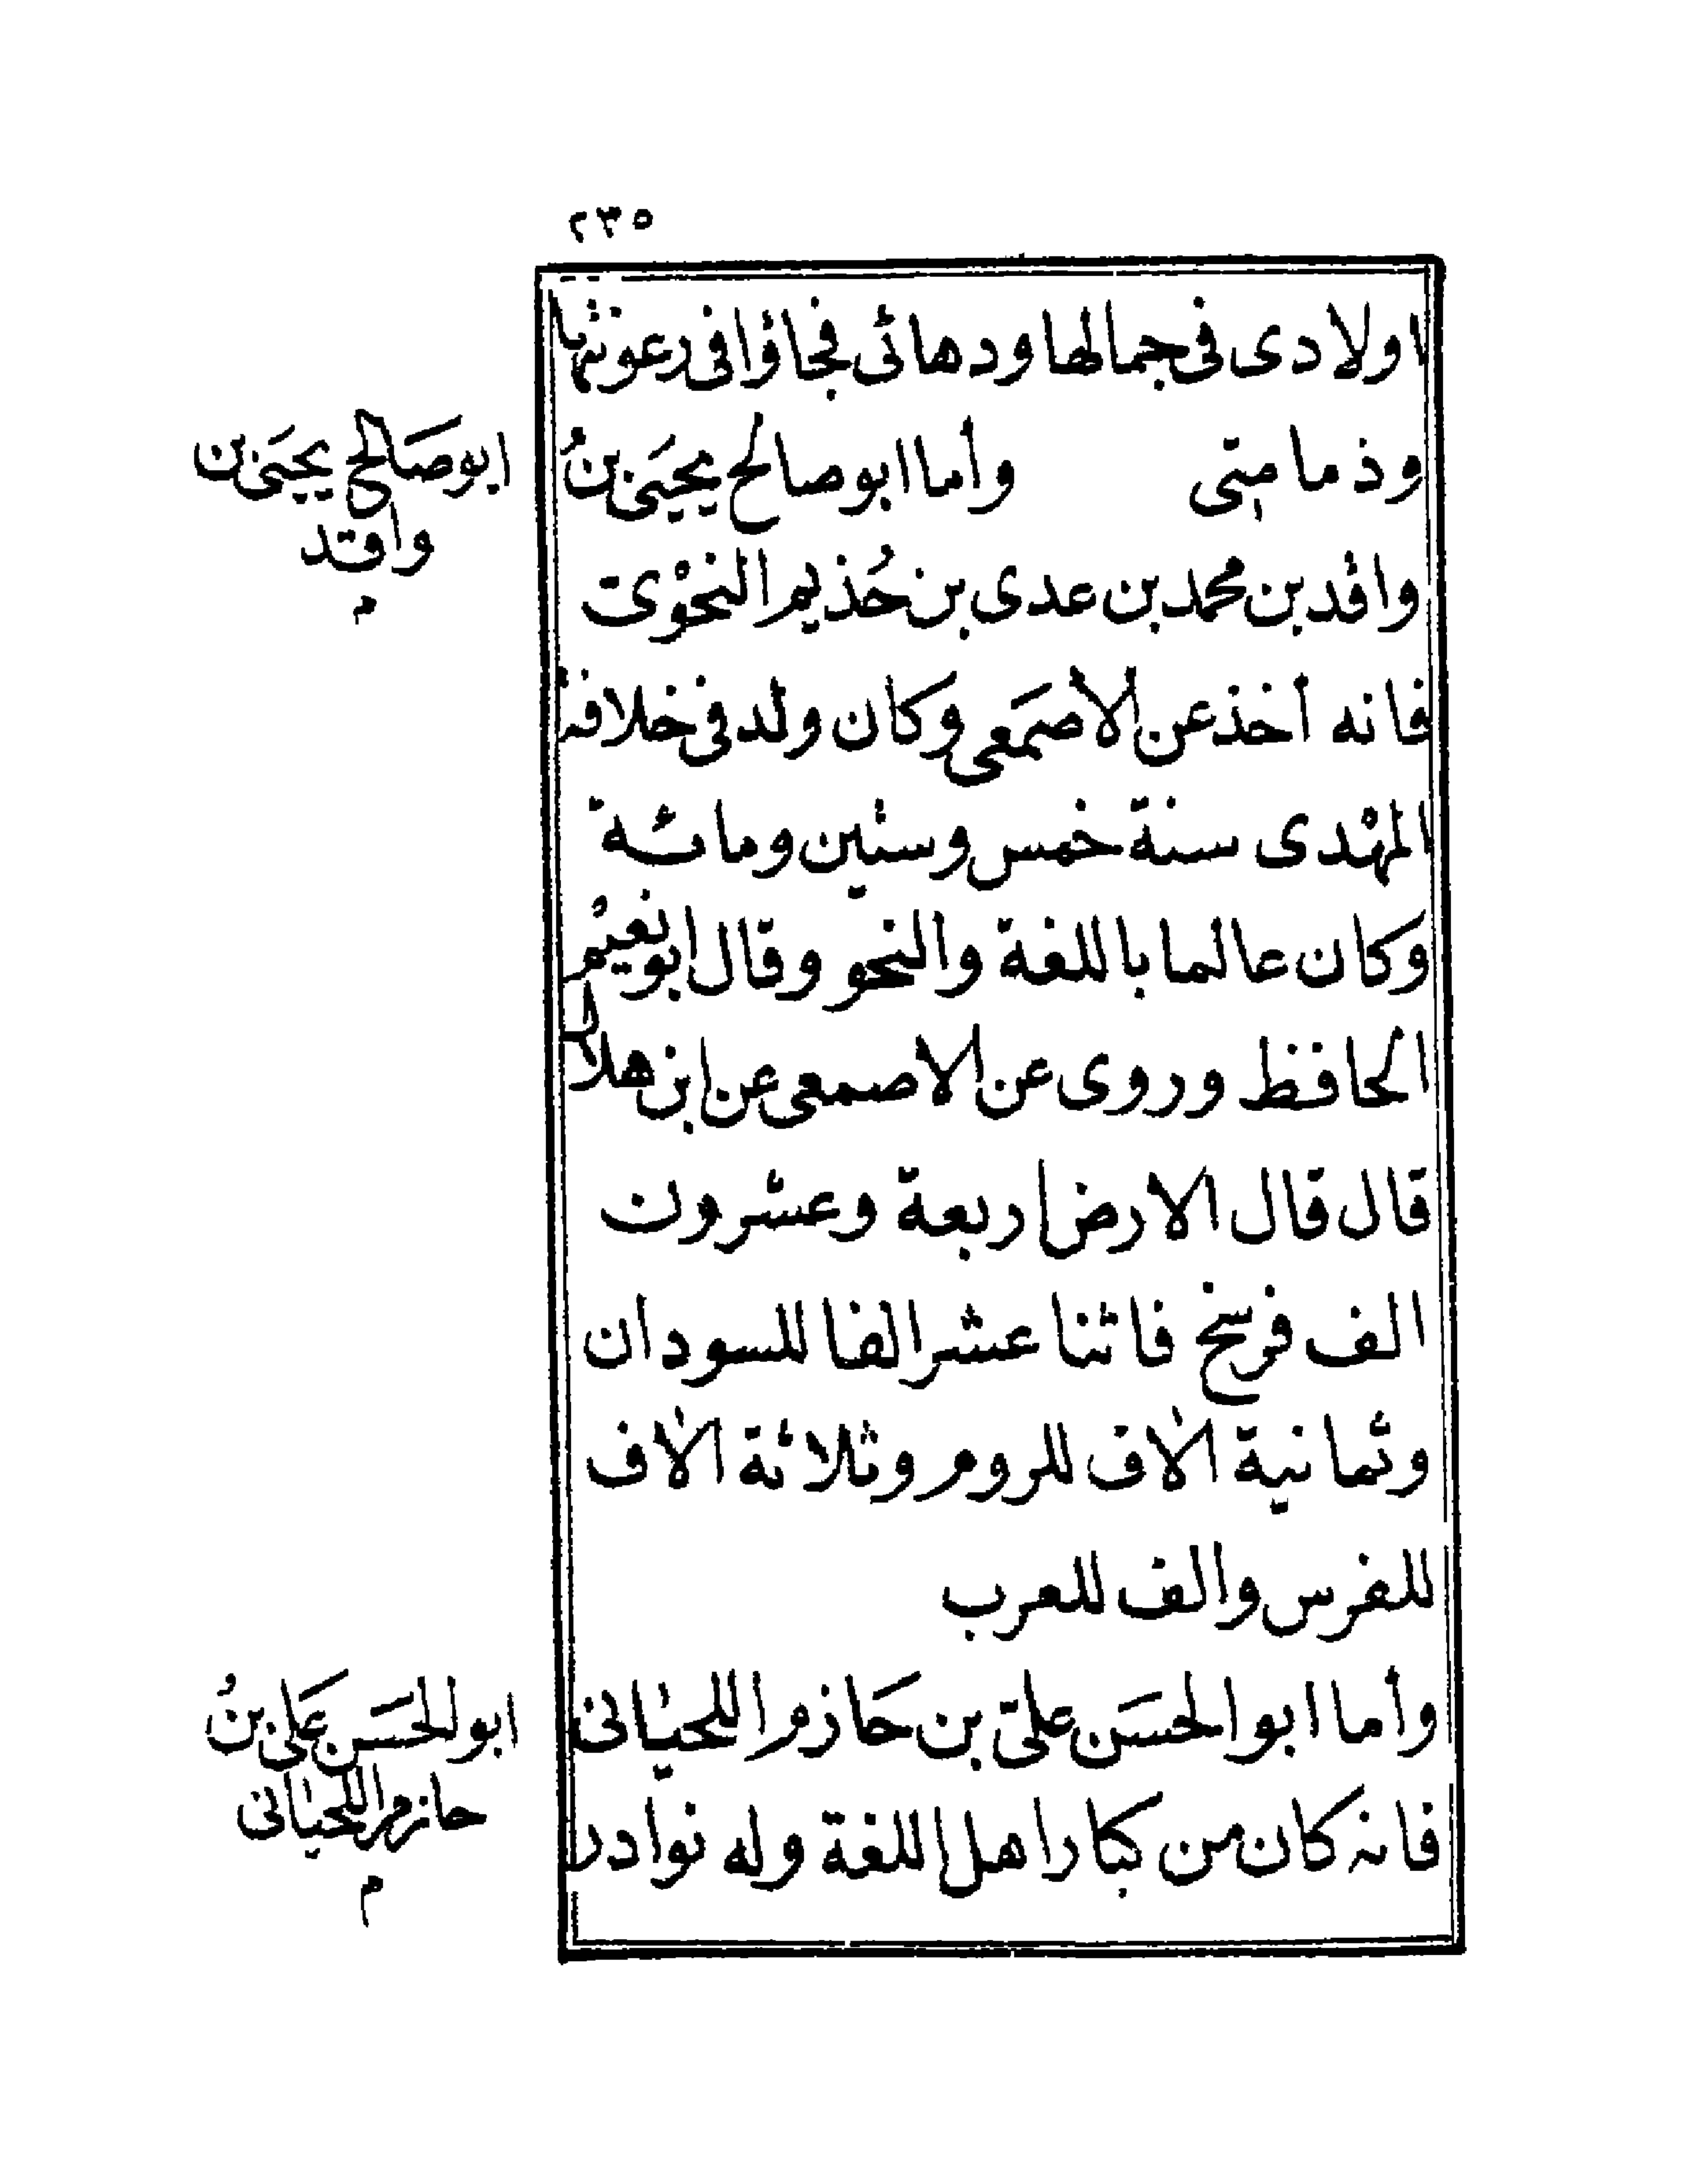 ٢٣٥
اولادى فى جمالها ودهائى فجاؤا فى رعونتها
وذمامتى وأما ابو صالح يحيَى بنُ
واقد بن محمد بن عدى بن حُذيم النحْوىّ
فانه أخذ عن الأصمَعى وكان ولد فى خلافة
المهْدى سنة خمس وستين ومائة
وكان عالما باللغة والنحو وقال ابو نعيْم
الحافظ وروى عن الاصمعى عن ابن هلال
قال قال الارض اربعة وعشرون
الف فرسخ فاثنا عشر الفا للسودان
وثمانية الاف للروم وثلاثة الاف
للفرس والف للعرب
وأما ابو الحسَن علىّ بن حَازم اللحيانى
فانه كان من كبار اهل اللغة وله نوادر
ابو صَالح يحيَى بن
واقد
م
ابو الحَسَن عَلى بنُ
حازم اللحيانى
م